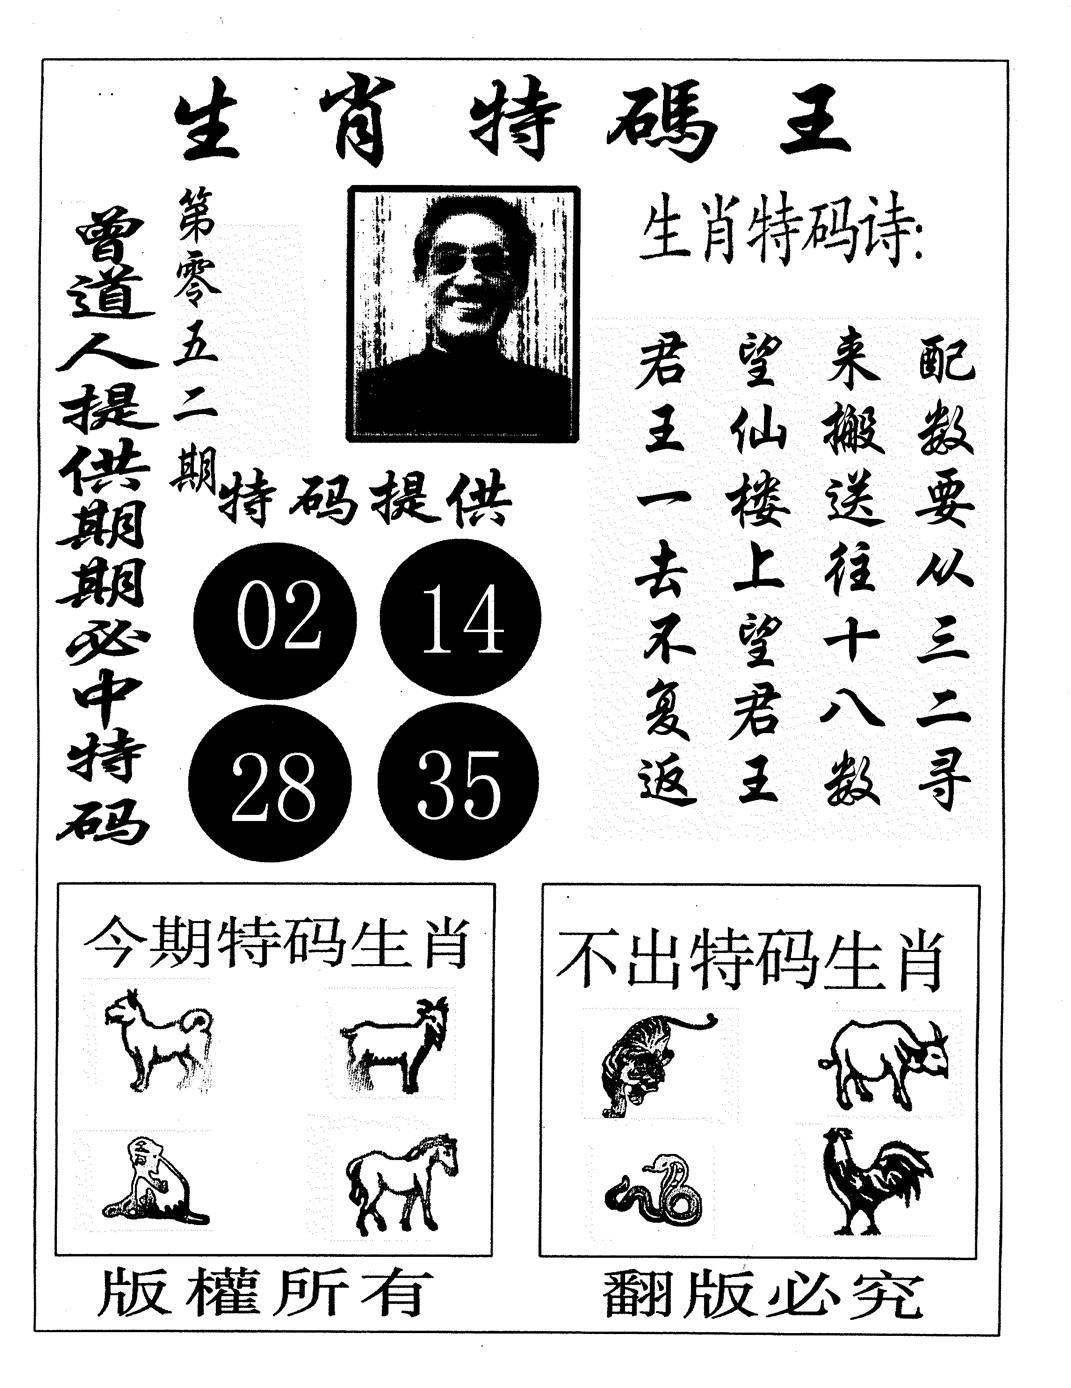 生肖特碼王
曾道人提供期期必中特码
第零五二期
特码提供
02 14
28 35
生肖特码诗:
君王一去不复返
望仙楼上望君王
来搬送往十八数
配数要从三二寻
今期特码生肖
不出特码生肖
版權所有
翻版必究